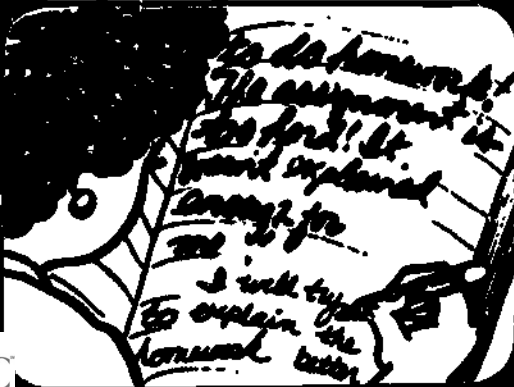 to do homework.
The assignment is
too hard! It
wasn't explained
enough for
me
I will try
to explain the
homework better